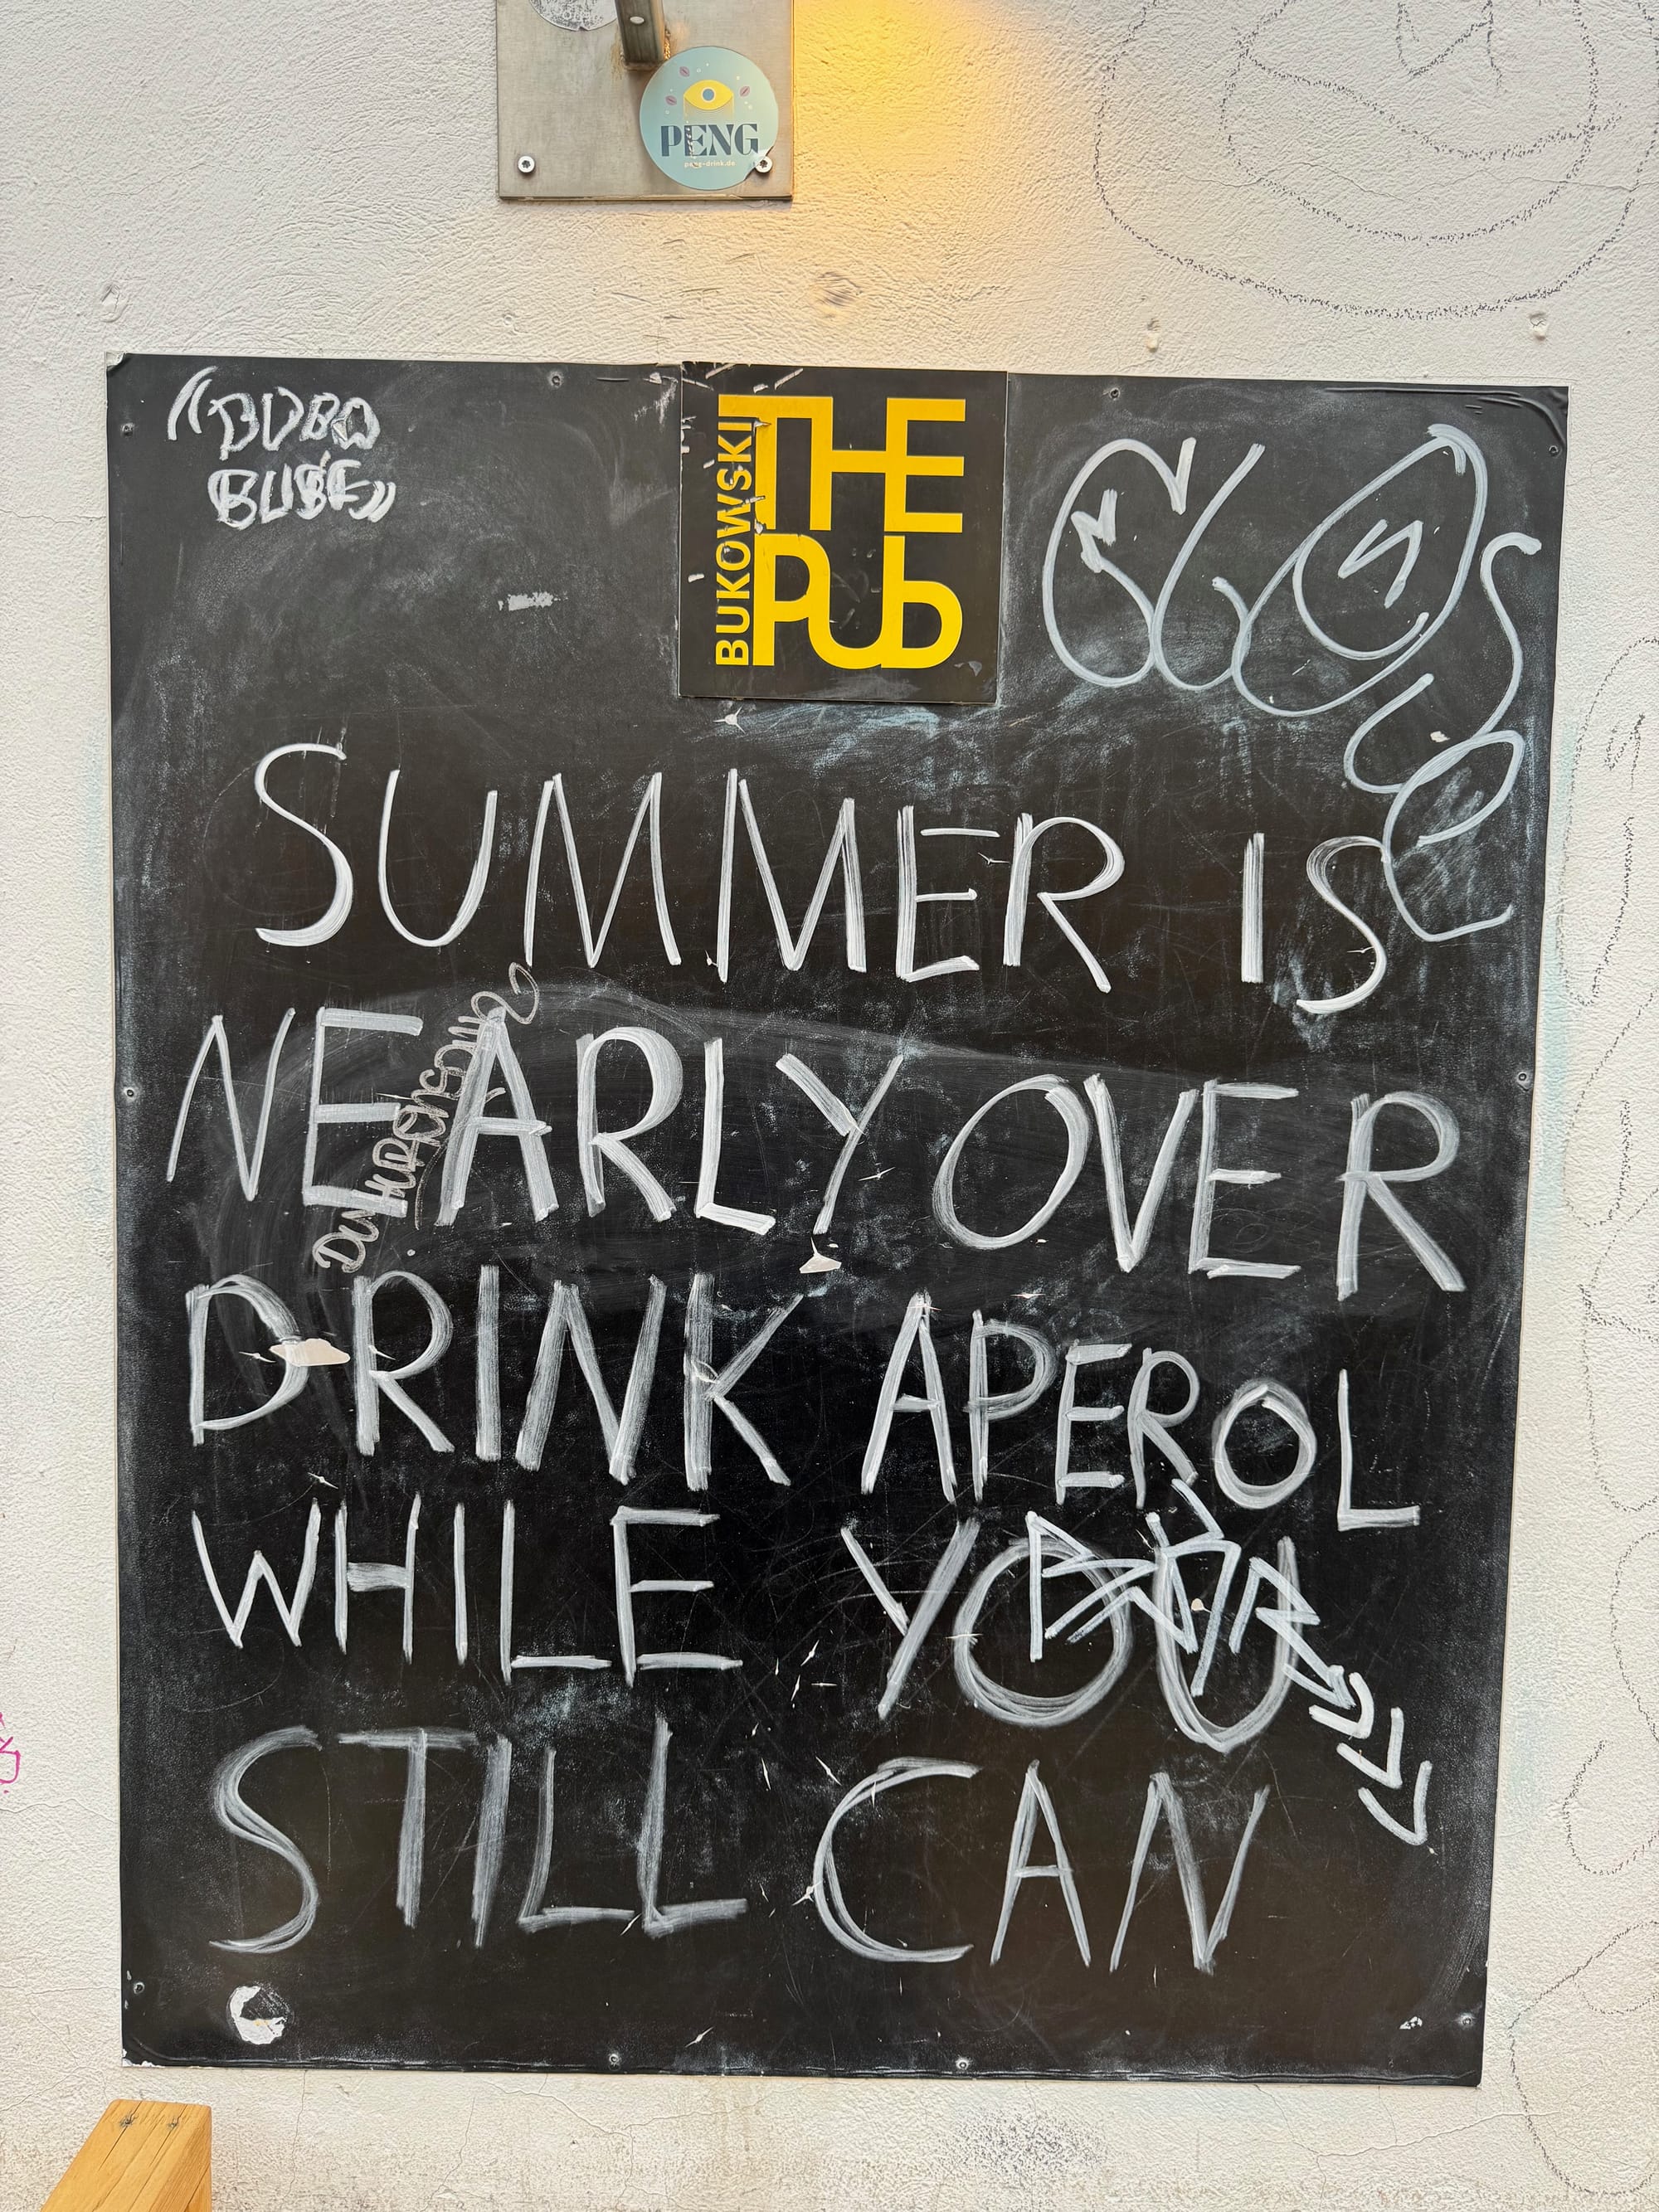 PENG
peng-drink.de
BUKOWSKI
THE
PUb
SUMMER IS
NEARLY OVER
DRINK APEROL
WHILE YOU
STILL CAN